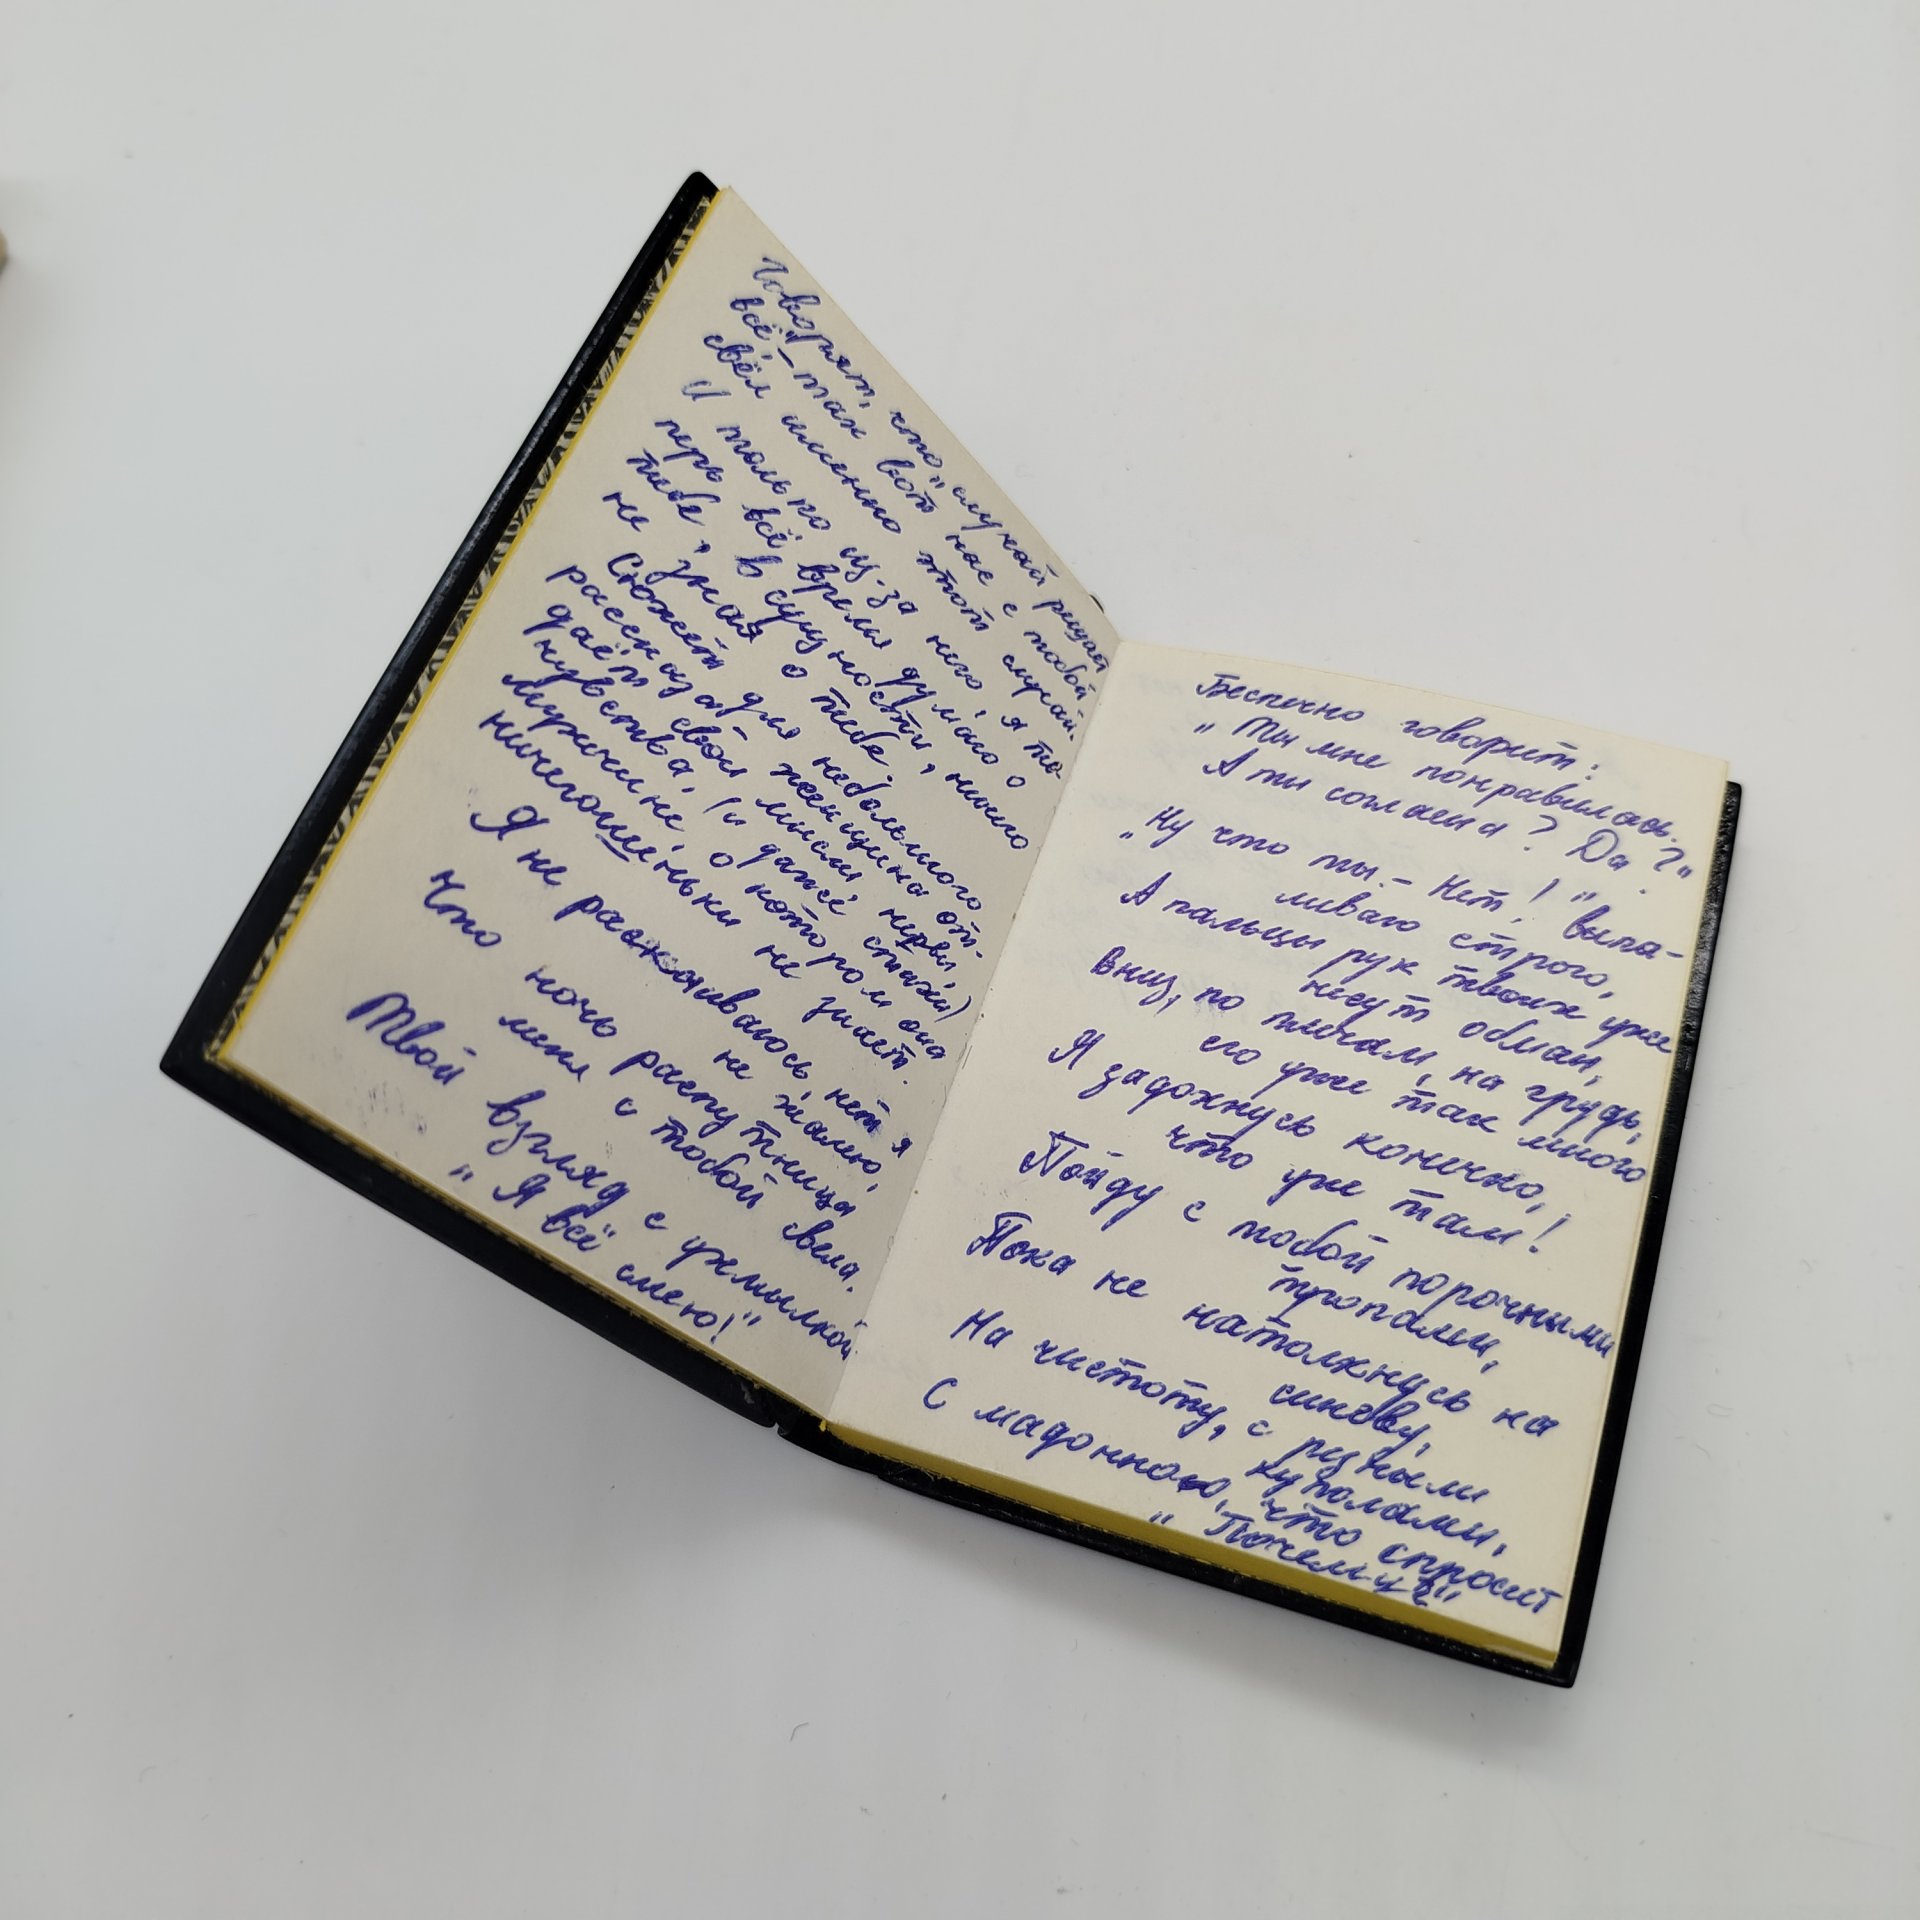 Говорят, что "случай решает
всё" – так вот нас с тобой
свёл именно этот случай.
И только из-за него, я те-
перь всё время думаю о
тебе, в сущности, ничего
не зная о тебе.
Сюжет для небольшого
рассказа, где женщина от-
даёт свои мысли, нервы,
чувства, (и даже стихи)
мужчине, о котором она
ничегошеньки не знает.
Я не раскаиваюсь, нет я
не жалею,
Что ночь распутница
меня с тобой свела.
Твой взгляд с ухмылкой
"Я всё смею!"
Беспечно говорит:
"Ты мне понравилась.
А ты согласна? Да?"
"Ну что ты. – Нет!" выпа-
ливаю строго,
А пальцы рук твоих уже
несут обман,
Вниз, по плечам, на грудь,
его уже так много
Я задохнусь конечно,
что уже там!
Пойду с тобой порочными
тропами,
Пока не натолкнусь на
синеву,
На чистоту, с резными
куполами,
С мадонною, что спросит
"Почему?"